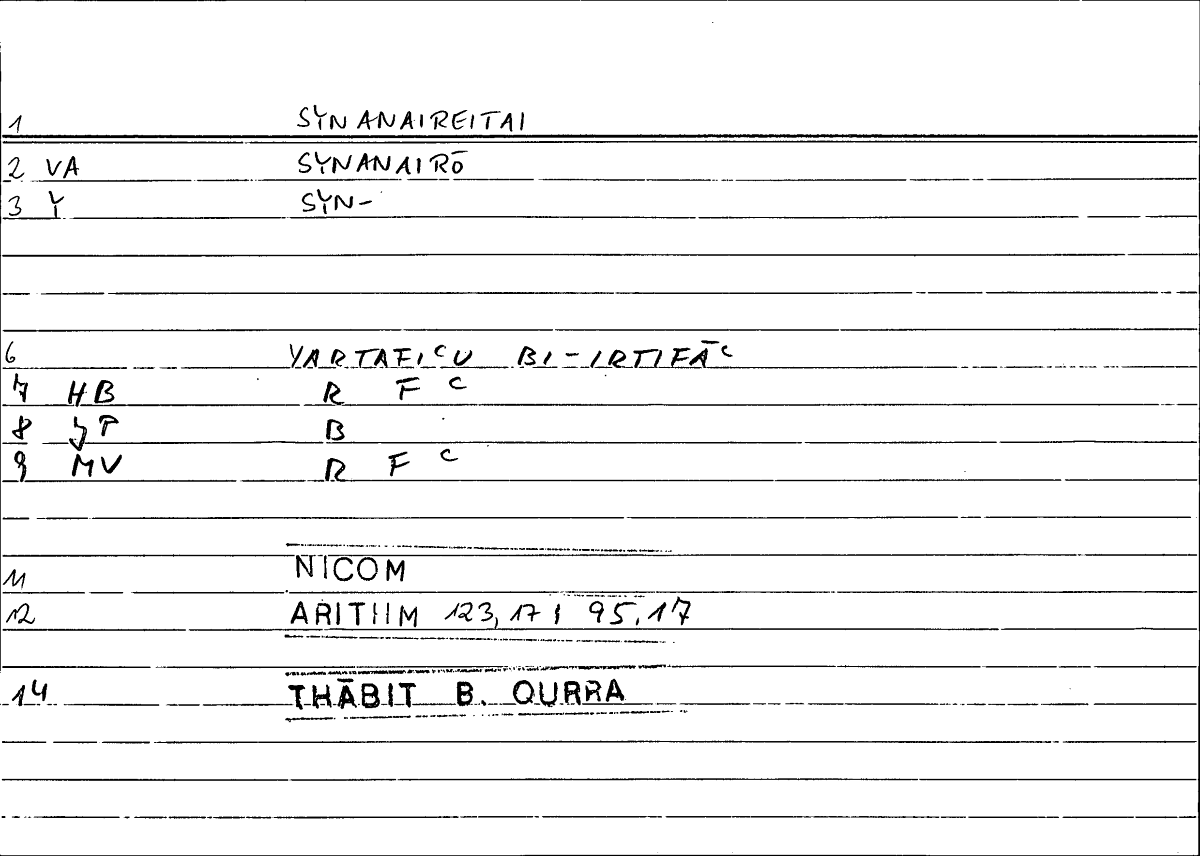 1 SYNANAIREITAI
2 VA SYNANAIRŌ
3 Y SYN-
6 YARTAFIᶜU BI-IRTIFĀᶜ
7 HB R F ᶜ
8 JP B
9 MV R F ᶜ
11 NICOM
12 ARITHM 123,17 ; 95,17
14 THĀBIT B. QURRA